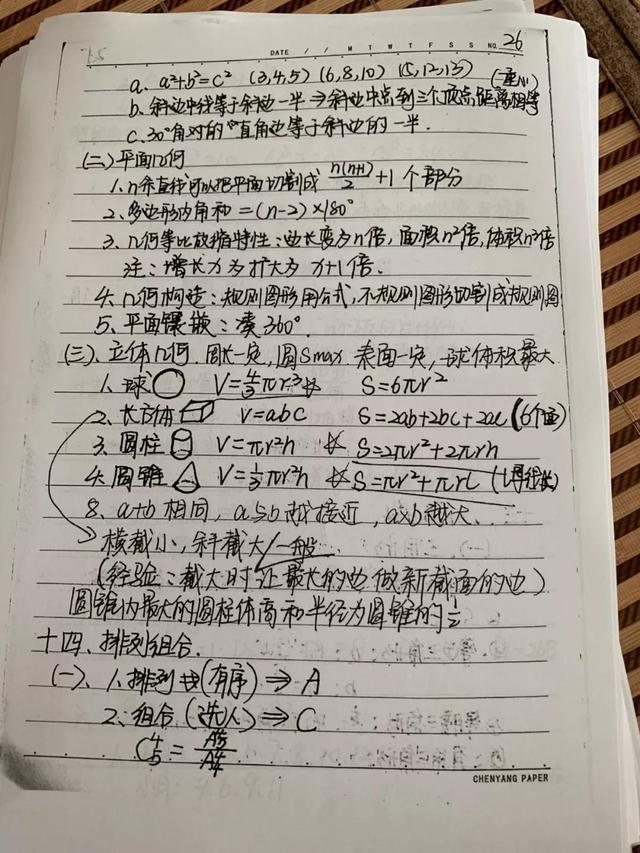 DATE / / M T W T F S S NO. 26
a. a²+b²=c² (3,4,5) (6,8,10) (5,12,13)
b. 斜边中线等于斜边一半⇒斜边中点到三个顶点距离相等
c. 30°角对的直角边等于斜边的一半.
(二)平面几何
1. n条直线可以把平面切割成 n(n+1)/2 +1 个部分
2. 多边形内角和=(n-2)×180°
3. 几何等比放缩特性:边长变为n倍,面积n²倍,体积n³倍
注:增长x为扩大为x+1倍.
4. 几何构造:规则图形用公式,不规则图形切割成规则图
5. 平面镶嵌:凑360°
(三)、立体几何. 周长一定,圆Smax. 表面一定,球体积最大
1. 球 V=4/3πr³ S=6πr²
2. 长方体 V=abc S=2ab+2bc+2ac (6个面)
3. 圆柱 V=πr²h S=2πr²+2πrh
4. 圆锥 V=1/3πr²h S=πr²+πrL (L母线长)
8. a+b相同,a与b越接近,a×b越大.
横截小,斜截大/一般
(经验:截大时让最长的边做新截面的边)
圆锥内最大的圆柱体高和半径为圆锥的1/2
十四、排列组合.
(一)、1.排列(有序)⇒A
2.组合(选人)⇒C
C⁴₅=
CHENYANG PAPER